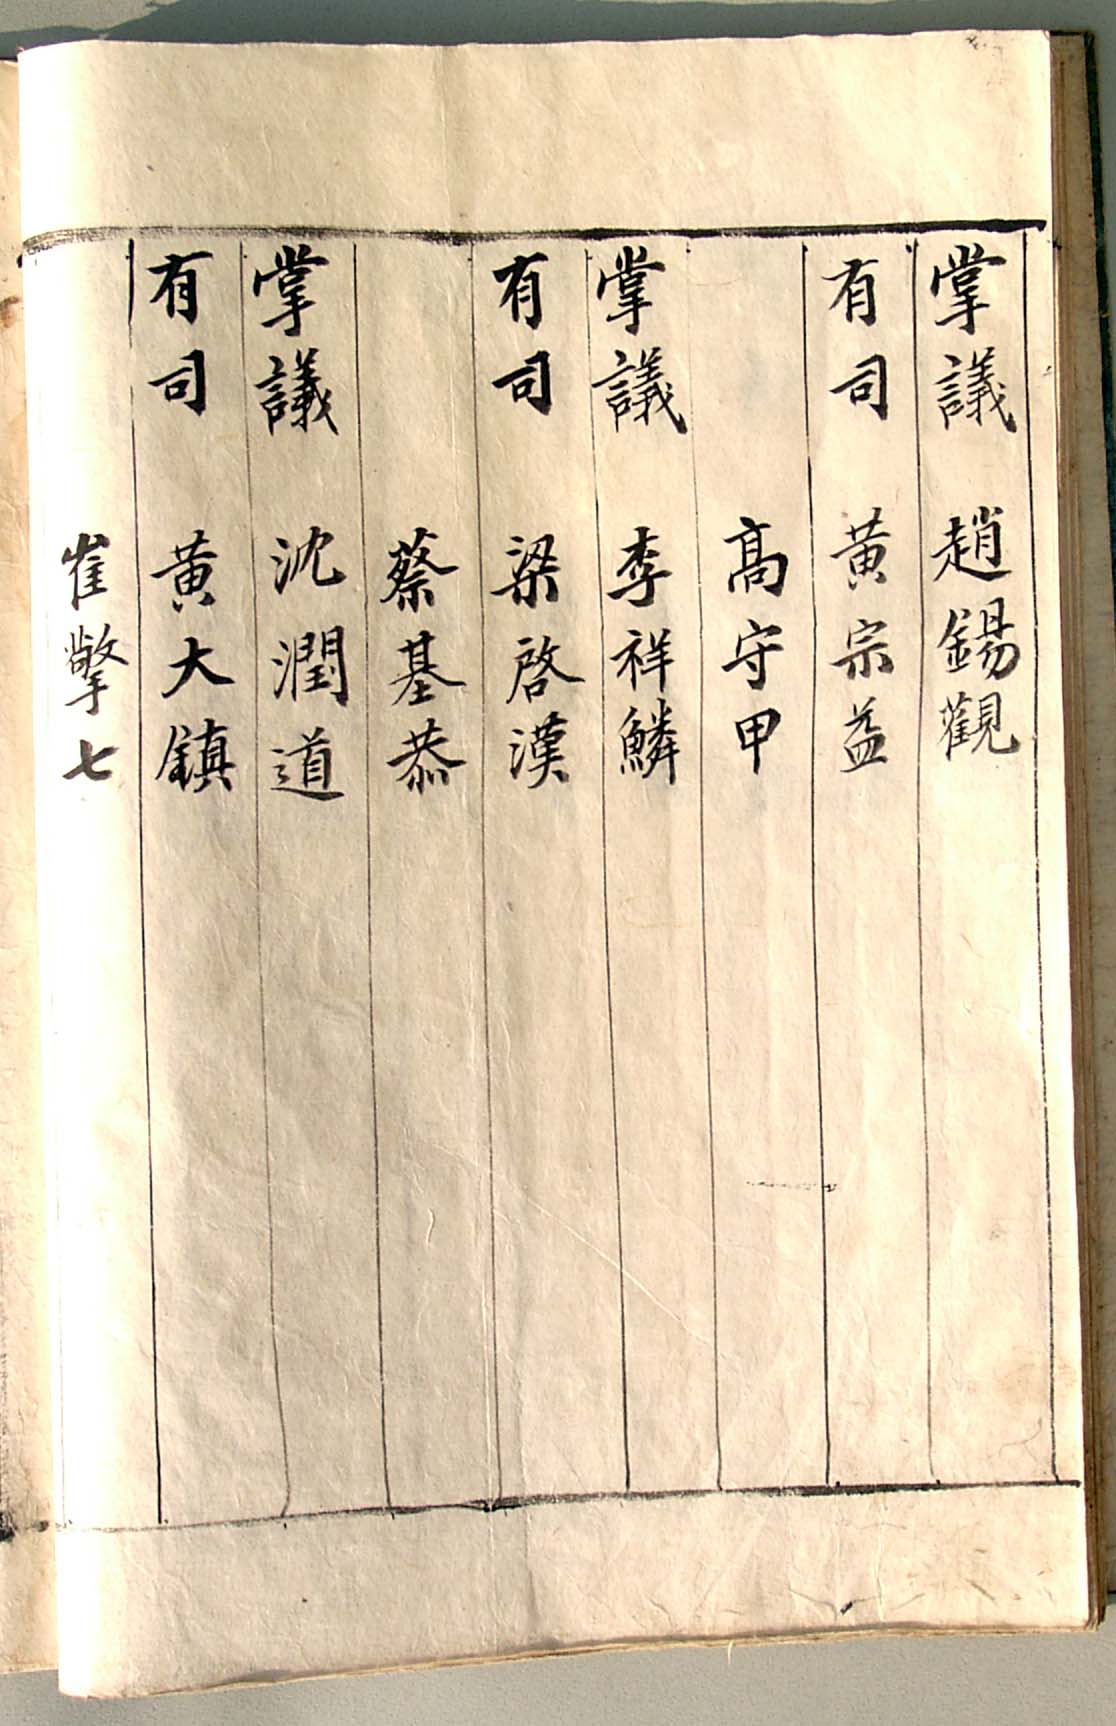 掌議 趙錫觀
有司 黃宗益
高守甲
掌議 李祥鱗
有司 梁啓漢
蔡基恭
掌議 沈潤道
有司 黃大鎮
崔擎七